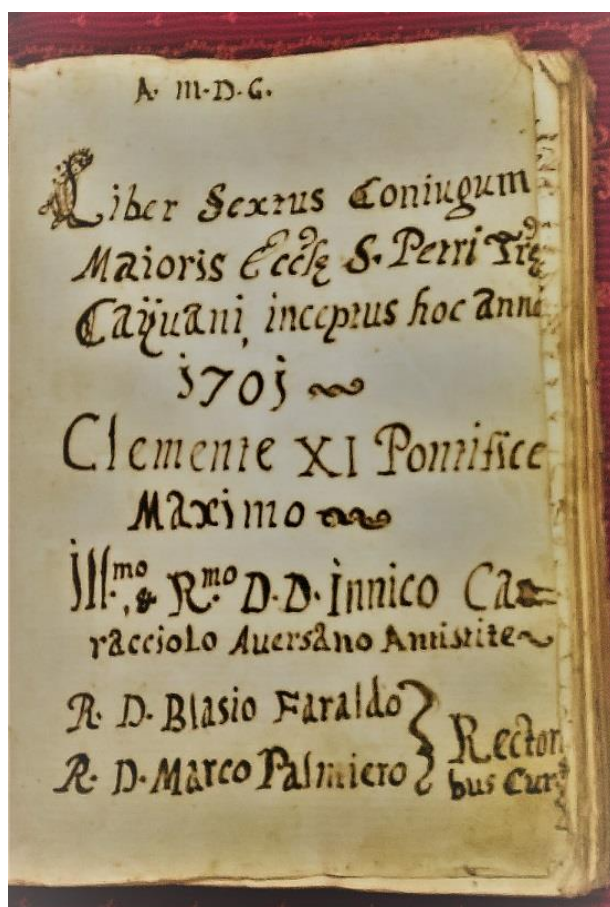 A. M. D. G.
Liber Sextus Coniugum
Maioris Eccłę S. Petri
Caÿuani, inceptus hoc anno
1701
Clemente XI Pontifice
Maximo
Ill.mo & R.mo D. D. Innico Ca=
racciolo Auersano Antistite
R. D. Blasio Faraldo
R. D. Marco Palmiero
Rectori
bus